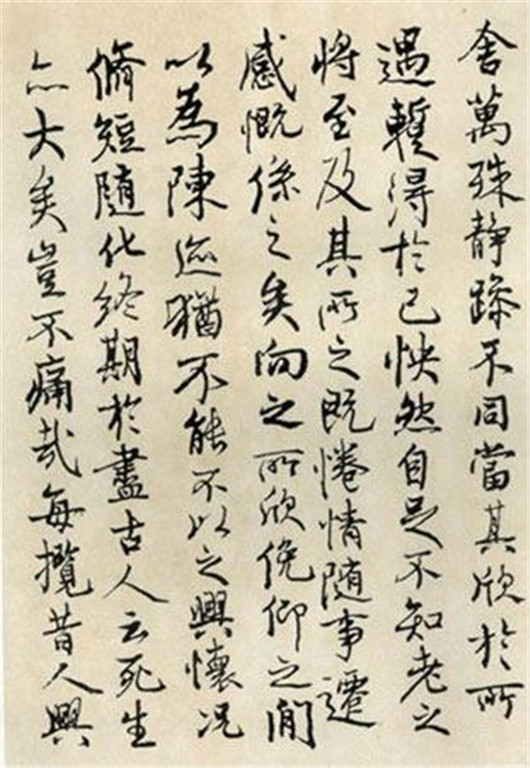 舍萬殊静躁不同當其欣於所
遇蹔得於己怏然自足不知老之
将至及其所之既惓情随事遷
感慨係之矣向之所欣俛仰之閒
以為陳迹猶不能不以之興懷况
脩短随化終期於盡古人云死生
亦大矣豈不痛哉每攬昔人興